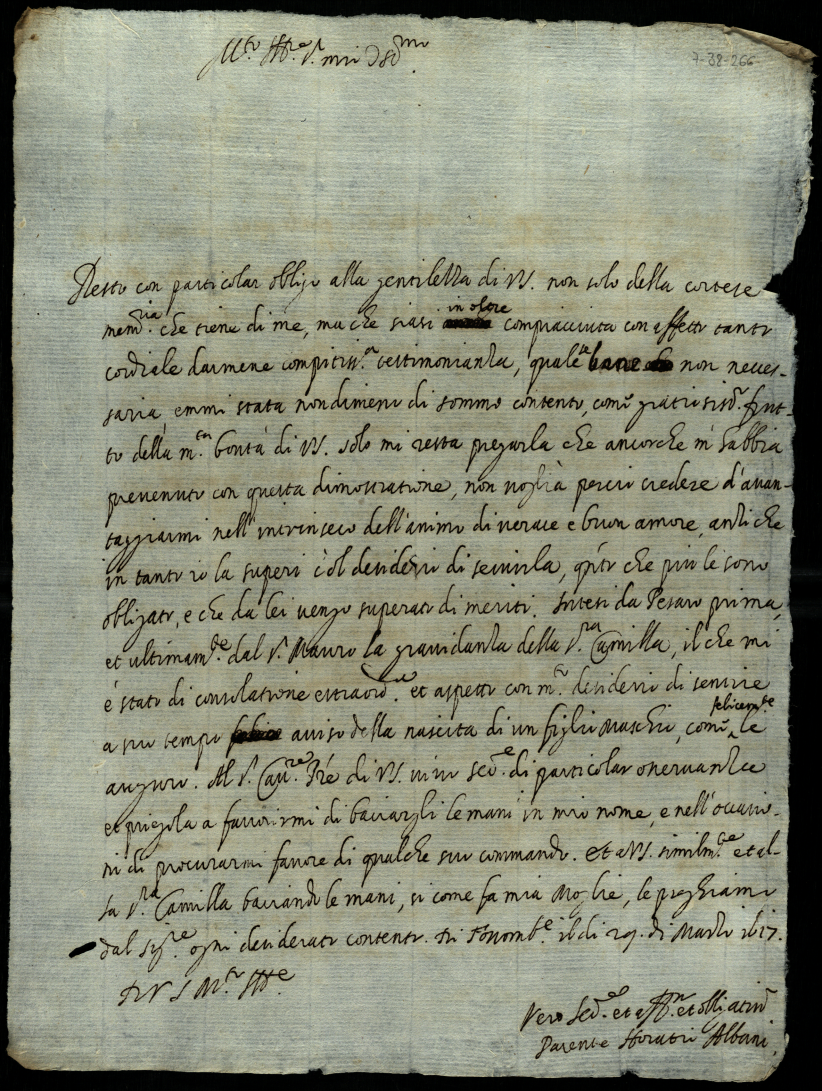 7-38-266
M.to Ill.re S.r mio Oss.mo
Resto con particolar obligo alla gentilezza di VS. non solo della cortese
mem.ria che tiene di me, ma che siasi in oltre compiacciuta con affetto tanto
cordiale darmene compitiss.a testimonianza, quale se bene non neces-
saria, emmi stata nondimeno di sommo contento, come gratiosiss.o frut-
to della m.ta bontà di VS. solo mi resta pregarla che ancorche m'habbia
prevenuto con questa dimostratione, non voglia perciò credere d'avan-
taggiarmi nell'intrinseco dell'animo di verace e buon amore, anzi che
in tanto io la superi col desiderio di servirla, q.to che più le sono
obligato, e che da lei vengo superato di meriti. Intesi da Pesaro prima,
et ultimam.te dal S.r Mauro la gravidanza della S.ra Camilla, il che mi
è stato di consolatione estraord.a et aspetto con m.to desiderio di sentire
a suo tempo aviso della nascita di un figlio Maschio, come felicem.te le
auguro. Al S.r Cav.re Fre di VS. vivo ser.e di particolar osservanza
et priegola a favorirmi di baciargli le mani in mio nome, e nell'occasio-
ni di procurarmi favore di qualche suo commando. Et a VS. similm.te et al-
la S.ra Camilla baciando le mani, si come fa mia Moglie, le preghiamo
dal Sig.re ogni desiderato contento. Di il di 29. di Marzo 1617.
Di V S M.to Ill.re
Vero Ser.e et aff.mo et obligatiss.o
Parente Horatio Albani